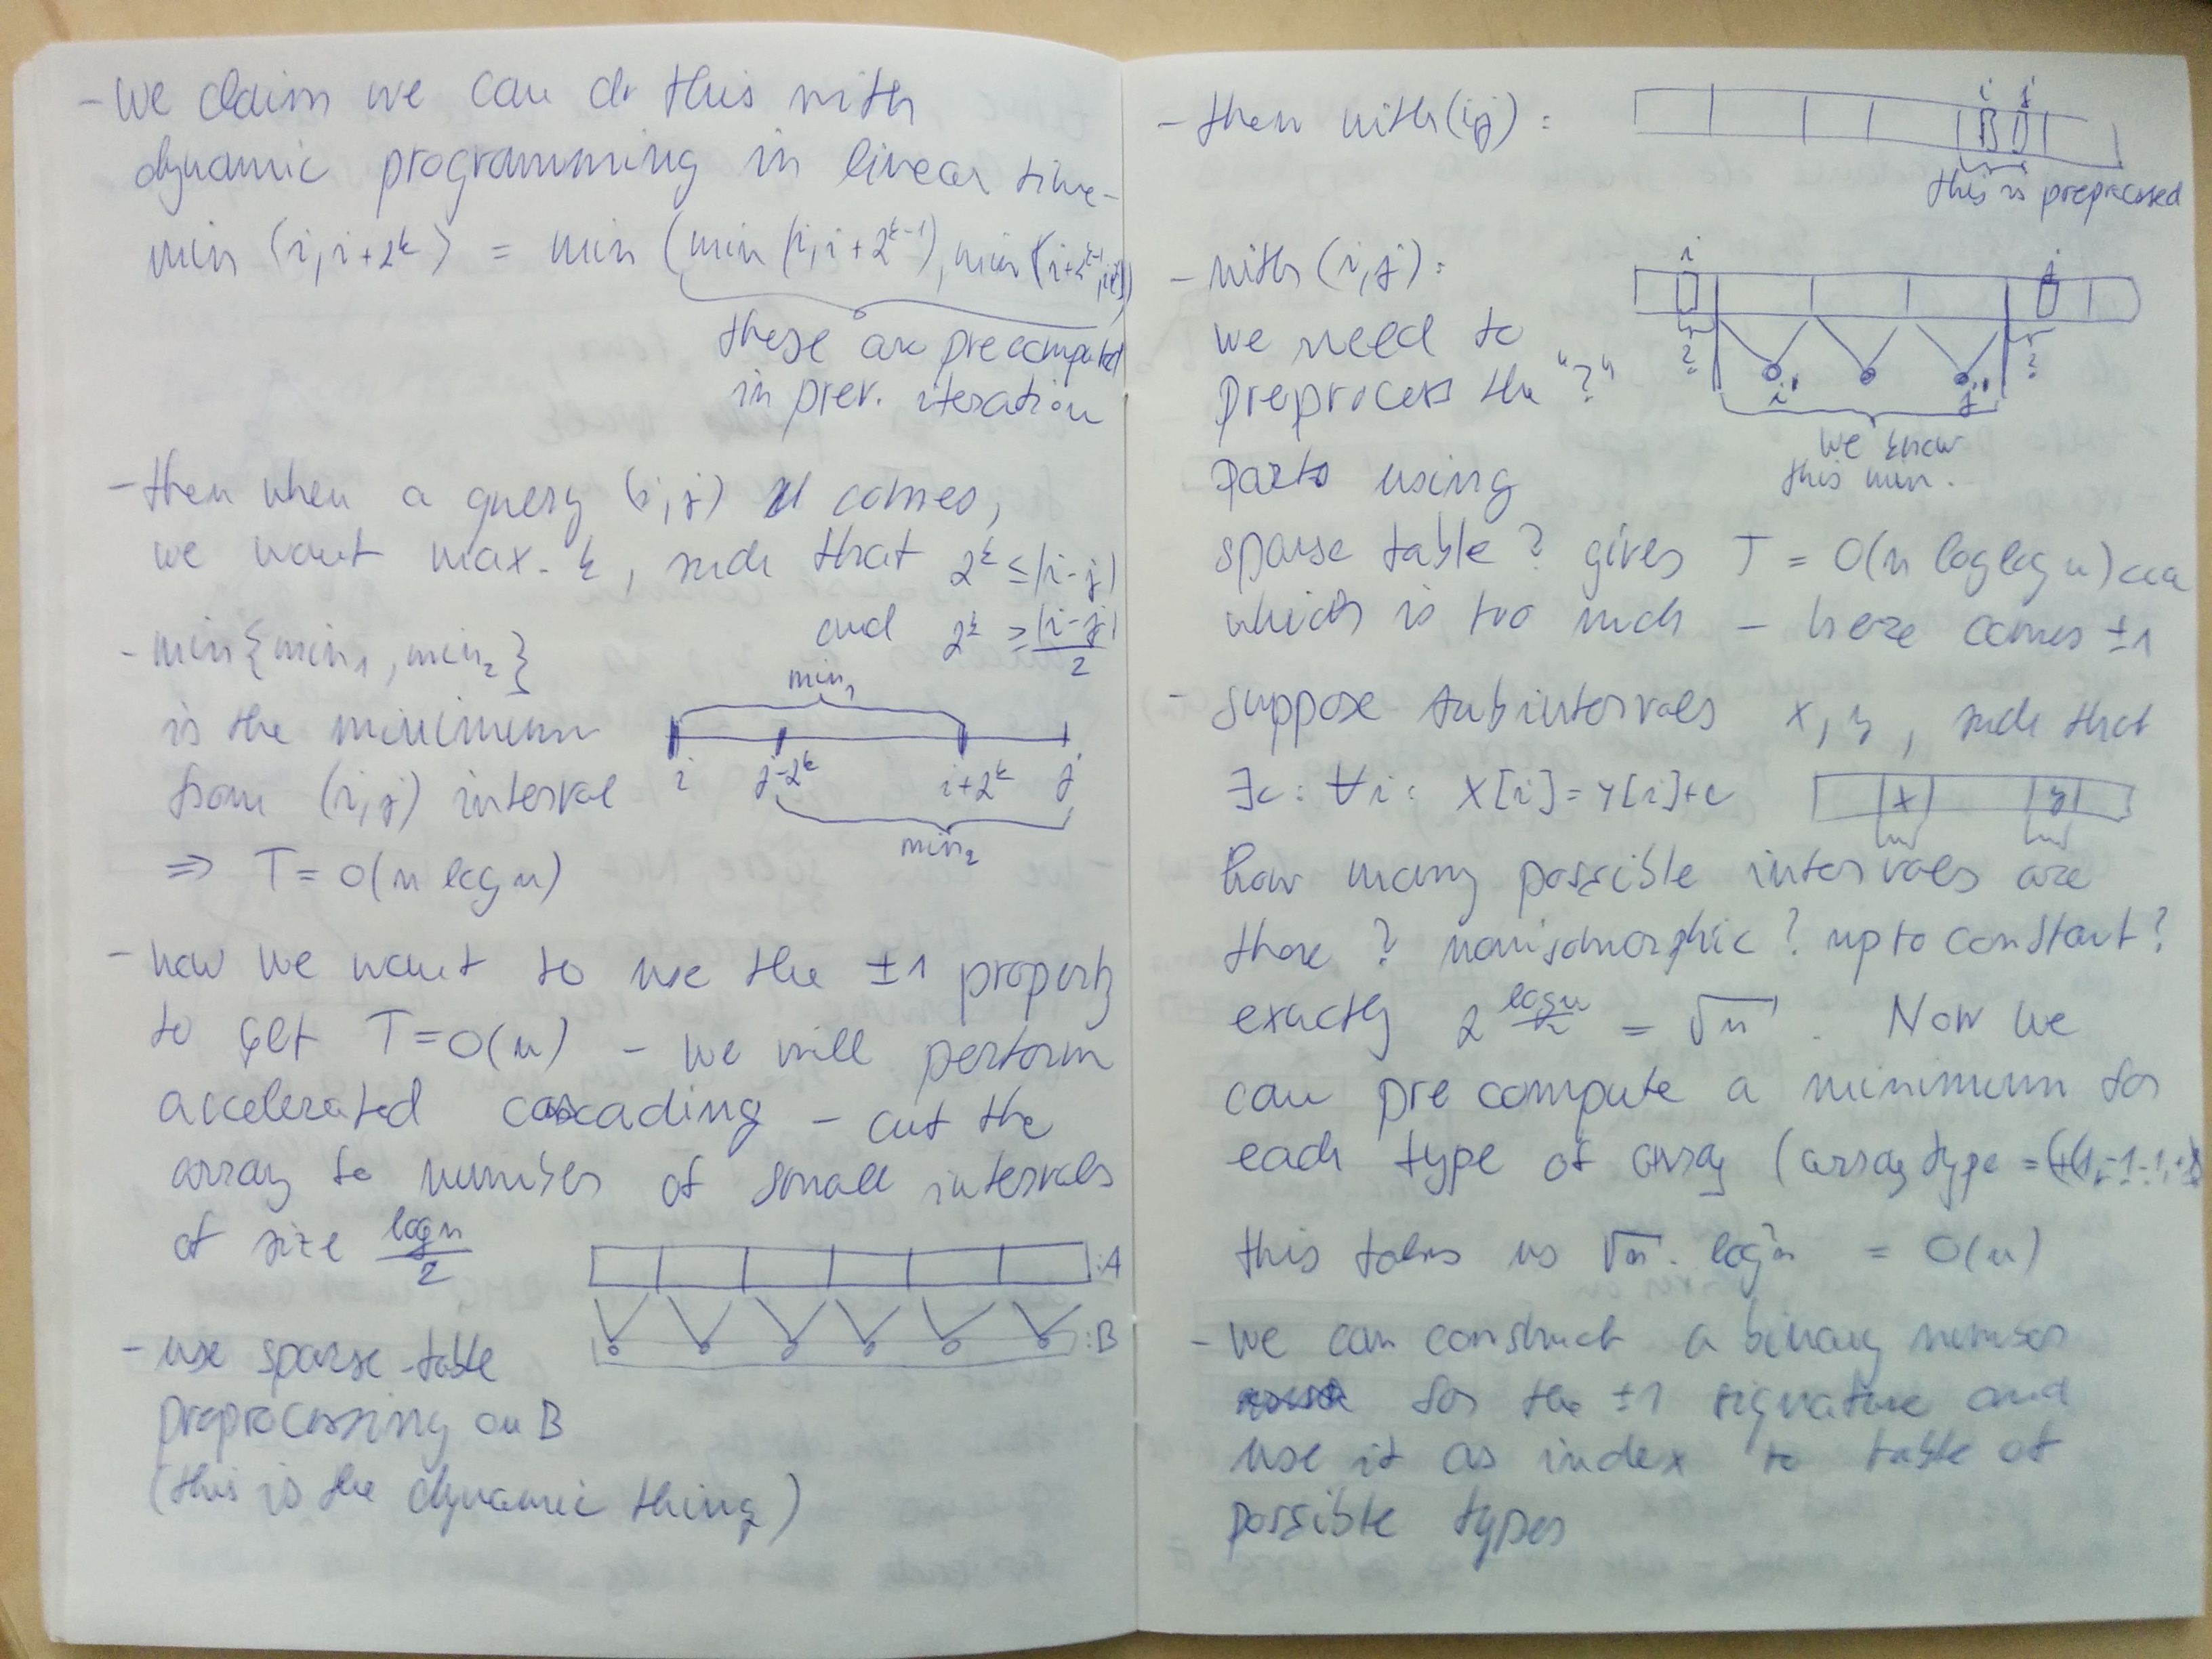 - We claim we can do this with
dynamic programming in linear time-
min (i, i+2^k) = min (min (i, i+2^{k-1}), min (i+2^{k-1},
these are precomputed
in prev. iteration
- then when a query (i,j) comes,
we want max. k, such that 2^k ≤ |i-j|
and 2^k ≥ |i-j|/2
- min{min_1, min_2}
is the minimum
from (i,j) interval
⇒ T = O(n log n)
min_1
i j-2^k i+2^k j
min_2
- now we want to use the ±1 property
to get T=O(n) - we will perform
accelerated cascading - cut the
array to number of small intervals
of size log n/2
:A
:B
- use sparse-table
preprocessing on B
(this is the dynamic thing)
- then with (i,j) :
i j
this is preprocessed
- with (i,j) :
we need to
preprocess the "?"
parts using
i j
? ?
i' j'
we know
this min.
sparse table? gives T = O(n log log n)
which is too much - here comes ±1
- suppose subintervals x, y, such that
∃c: ∀i: X[i]=Y[i]+c
x y
how many possible intervals are
there? nonisomorphic? up to constant?
exactly 2^{log n/2} = √n. Now we
can precompute a minimum for
each type of array (array type =
this takes us √n · log²n = O(n)
- we can construct a binary number
for the ±1 signature and
use it as index to table of
possible types